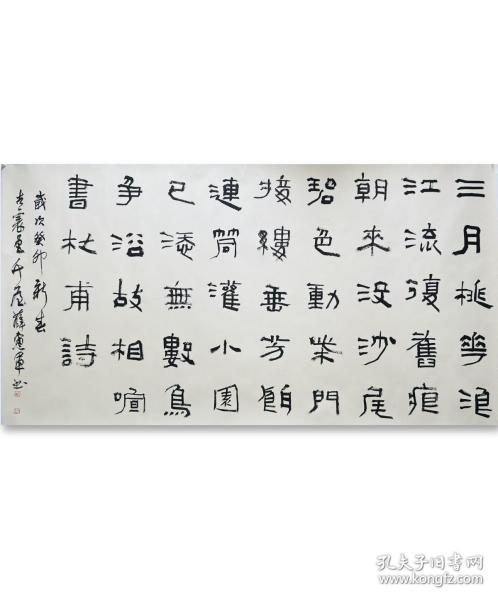 三月桃華浪
江流復舊痕
朝來没沙尾
碧色動柴門
接縷垂芳餌
連筒灌小園
已添無數鳥
争浴故相喧
書杜甫詩
歲次癸卯新春
孔夫子旧书网
www.kongfz.com